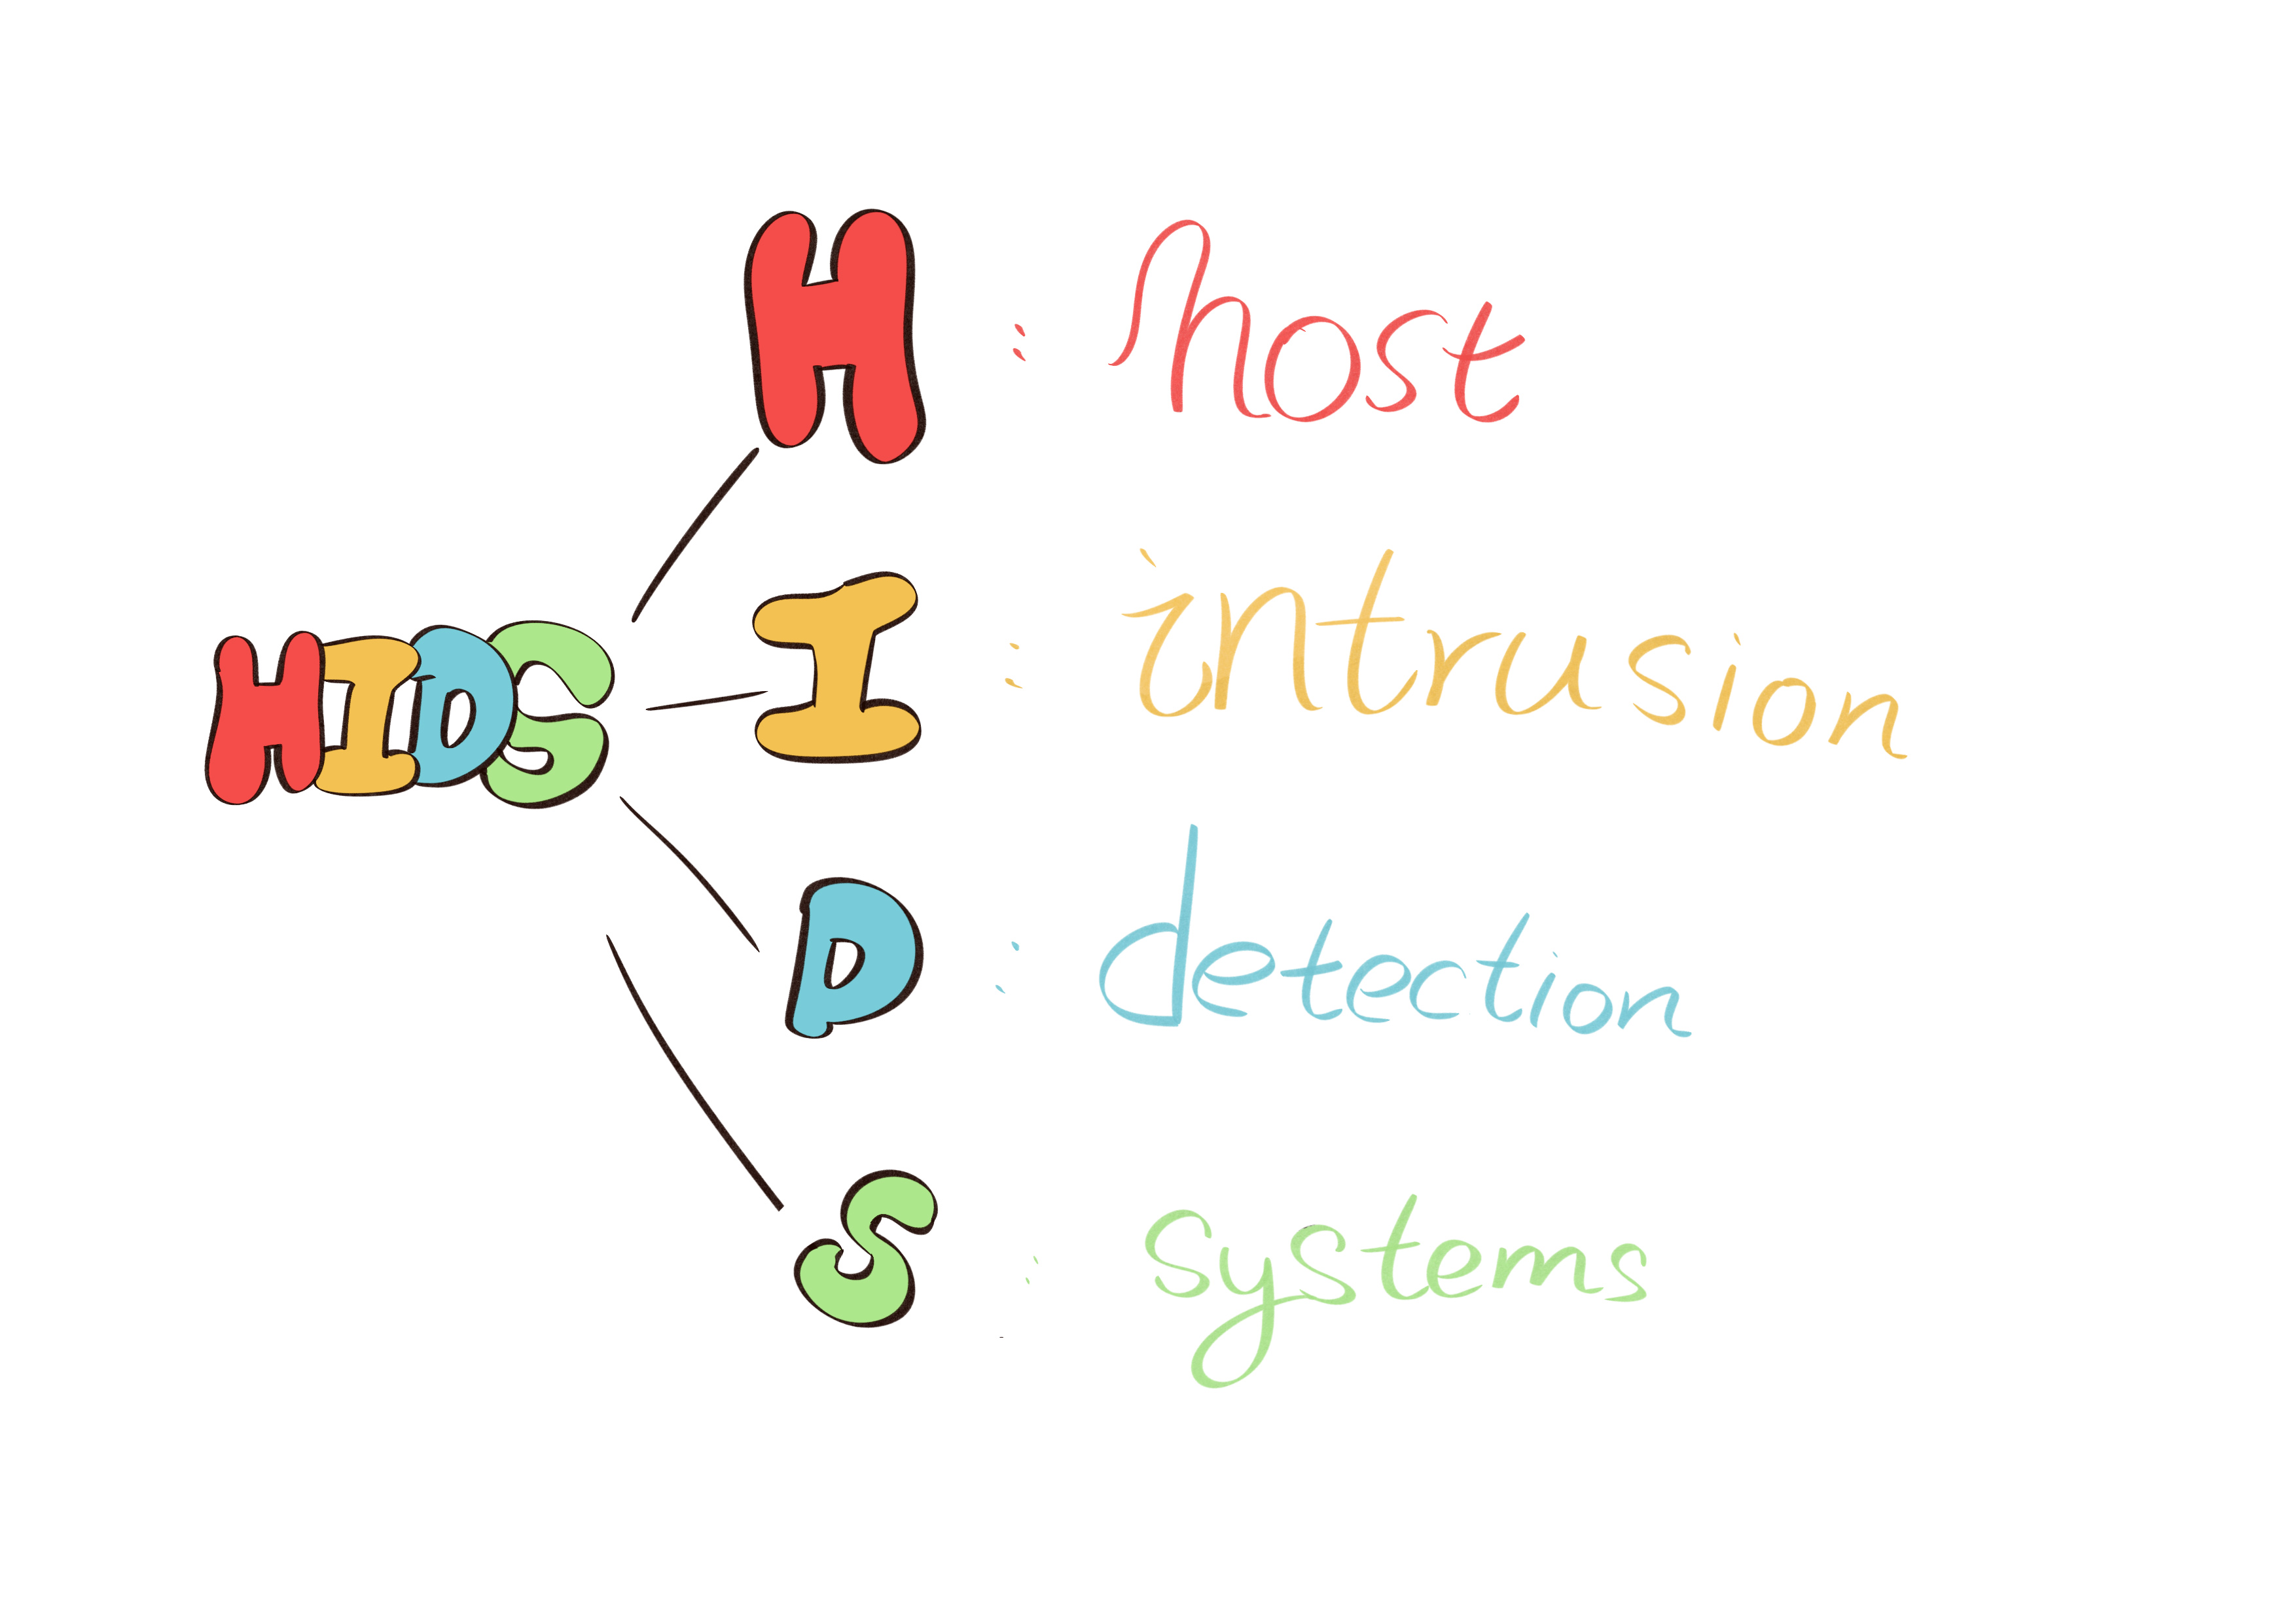 HIDS
H : host
I : intrusion
D : detection
S : systems